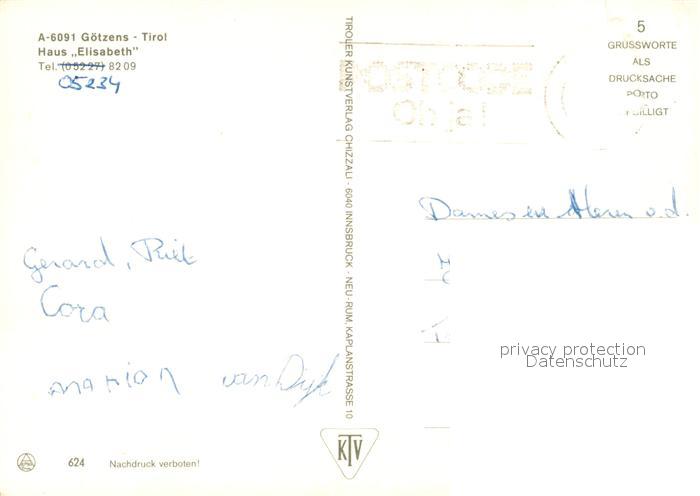 A-6091 Götzens - Tirol
Haus „Elisabeth"
Tel. (05227) 8209
05234
Gerard, Riet
Cora
Marion van Dijk
624 Nachdruck verboten!
TIROLER KUNSTVERLAG CHIZZALI - 6040 INNSBRUCK - NEU-RUM, KAPLANSTRASSE 10
KTV
POSTLOGE
Oh ja!
5
GRUSSWORTE
ALS
DRUCKSACHE
PORTO
Dames en Heren v.d.
privacy protection
Datenschutz